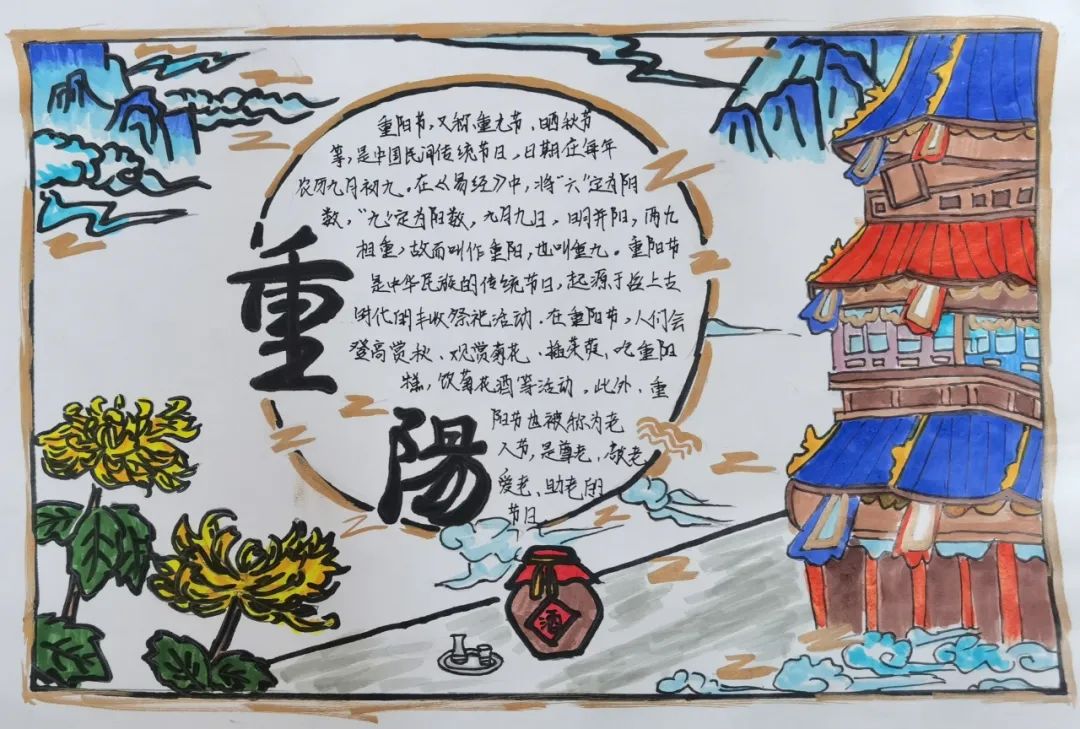 重阳节，又称重九节、晒秋节
等，是中国民间传统节日，日期在每年
农历九月初九。在《易经》中，将"六"定为阴
数，"九"定为阳数，九月九日，日月并阳，两九
相重，故而叫作重阳，也叫重九。重阳节
是中华民族的传统节日，起源于远上古
时代的丰收祭祀活动。在重阳节，人们会
登高赏秋、观赏菊花、插茱萸、吃重阳
糕，饮菊花酒等活动。此外，重
阳节也被称为老
人节，是尊老、敬老
爱老、助老的
节日
重
陽
酒